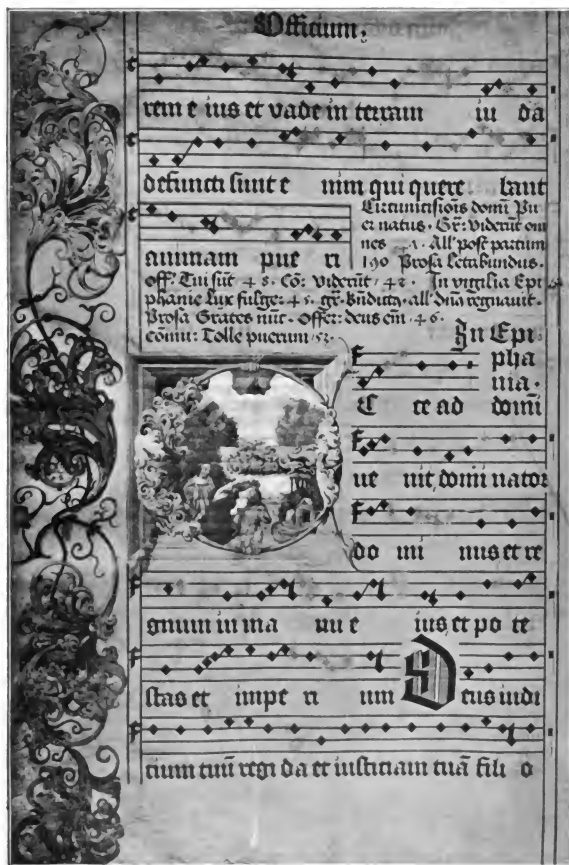 Officium.
rem e ius et vade in terram iu da
defuncti sunt e nim qui quere bant
animam pue ri
Circuncisiōis domī Pu
er natus. Gr: viderūt om
nes All' post partum
190 Prosa Letabundus.
off. Tui sūt 48. Cō: viderūt. 42. In vigilia Epi
phanie Lux fulge: 45. gr. Bn̄dict9. all. dn̄s regnavit.
Prosa Grates nūc. Offer: deus em̄. 46.
cōmu: Tolle puerum. 52.
In Epi
pha
nia.
E c ce ad domi
ue nit domi nator
do mi nus et re
gnum in ma nu e ius et po te
stas et impe ri um Deus iudi
cium tuū regi da et iusticiam tuā fili o